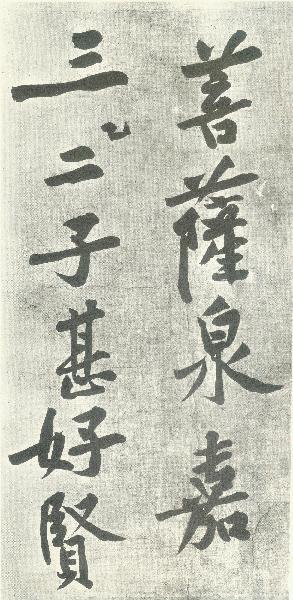 菩薩泉嘉
三乙二子甚好賢